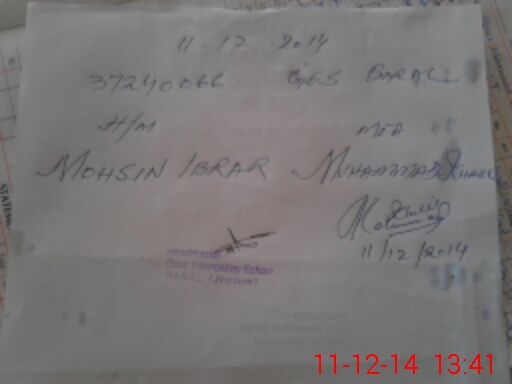 11.12.2014
37240066 GES BARAL
H/M MEA
MOHSIN IBRAR MUHAMMAD
11/12/2014
Headmaster
Govt. Elementary School
BARAL (Jhelum)
11-12-14 13:41